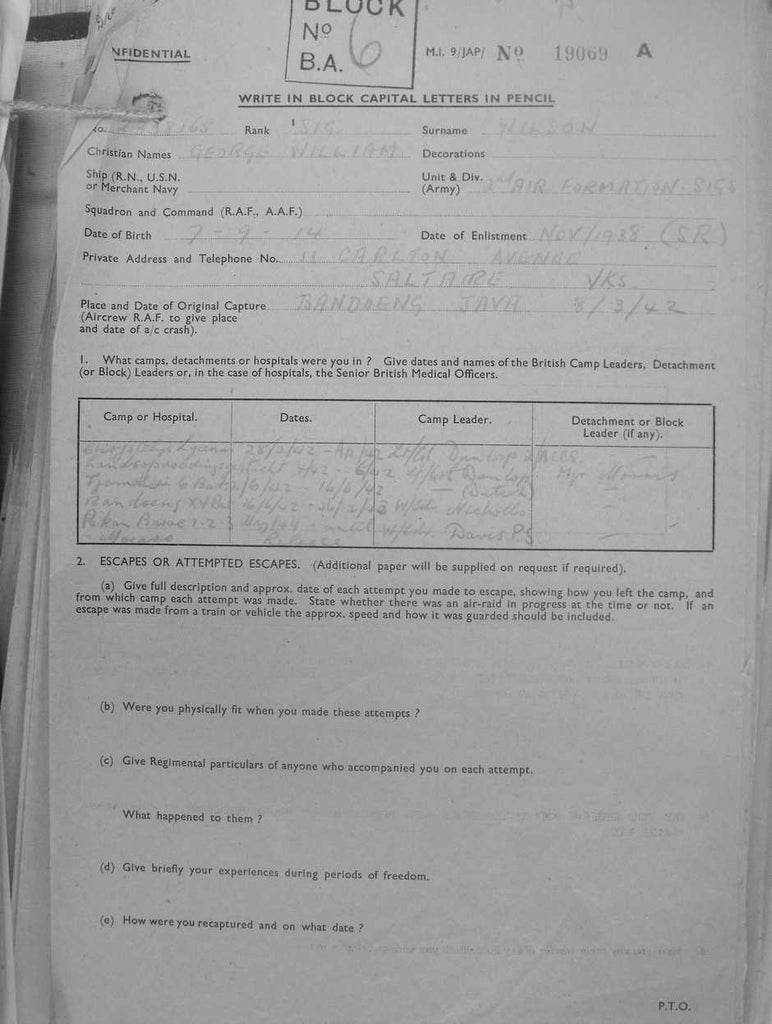 BLOCK
No 6
B.A.
NFIDENTIAL
M.I. 9/JAP/ No 19069 A
WRITE IN BLOCK CAPITAL LETTERS IN PENCIL
No. Rank SIG Surname WILSON
Christian Names GEORGE WILLIAM Decorations
Ship (R.N., U.S.N. or Merchant Navy
Unit & Div. (Army) 2nd AIR FORMATION SIGS
Squadron and Command (R.A.F., A.A.F.)
Date of Birth 7-9-14 Date of Enlistment NOV/1938 (SR)
Private Address and Telephone No. CARLTON AVENUE
SALTAIRE YKS
Place and Date of Original Capture BANDOENG JAVA 8/3/42
(Aircrew R.A.F. to give place
and date of a/c crash).
1. What camps, detachments or hospitals were you in ? Give dates and names of the British Camp Leaders, Detachment
(or Block) Leaders or, in the case of hospitals, the Senior British Medical Officers.
Camp or Hospital. Dates. Camp Leader. Detachment or Block
Leader (if any).
Lt/Col Dunlop
4/42 - 6/42 Lt/Col Dunlop Mjr Morris
6 Bat 16/6/42 — (Dutch) —
Bandoeng XV Bat 16/6/42 W/Cdr Nicholls —
Pakan Baroe 1-2-3 until W/Cdr Davis PS —
Release
2. ESCAPES OR ATTEMPTED ESCAPES. (Additional paper will be supplied on request if required).
(a) Give full description and approx. date of each attempt you made to escape, showing how you left the camp, and
from which camp each attempt was made. State whether there was an air-raid in progress at the time or not. If an
escape was made from a train or vehicle the approx. speed and how it was guarded should be included.
(b) Were you physically fit when you made these attempts ?
(c) Give Regimental particulars of anyone who accompanied you on each attempt.
What happened to them ?
(d) Give briefly your experiences during periods of freedom.
(e) How were you recaptured and on what date ?
P.T.O.